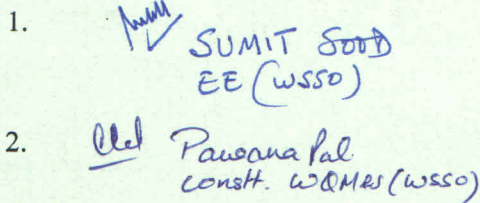 1.
SUMIT SOOD
EE (WSSO)
2. Pawana Pal
Constt. WQM&S (WSSO)